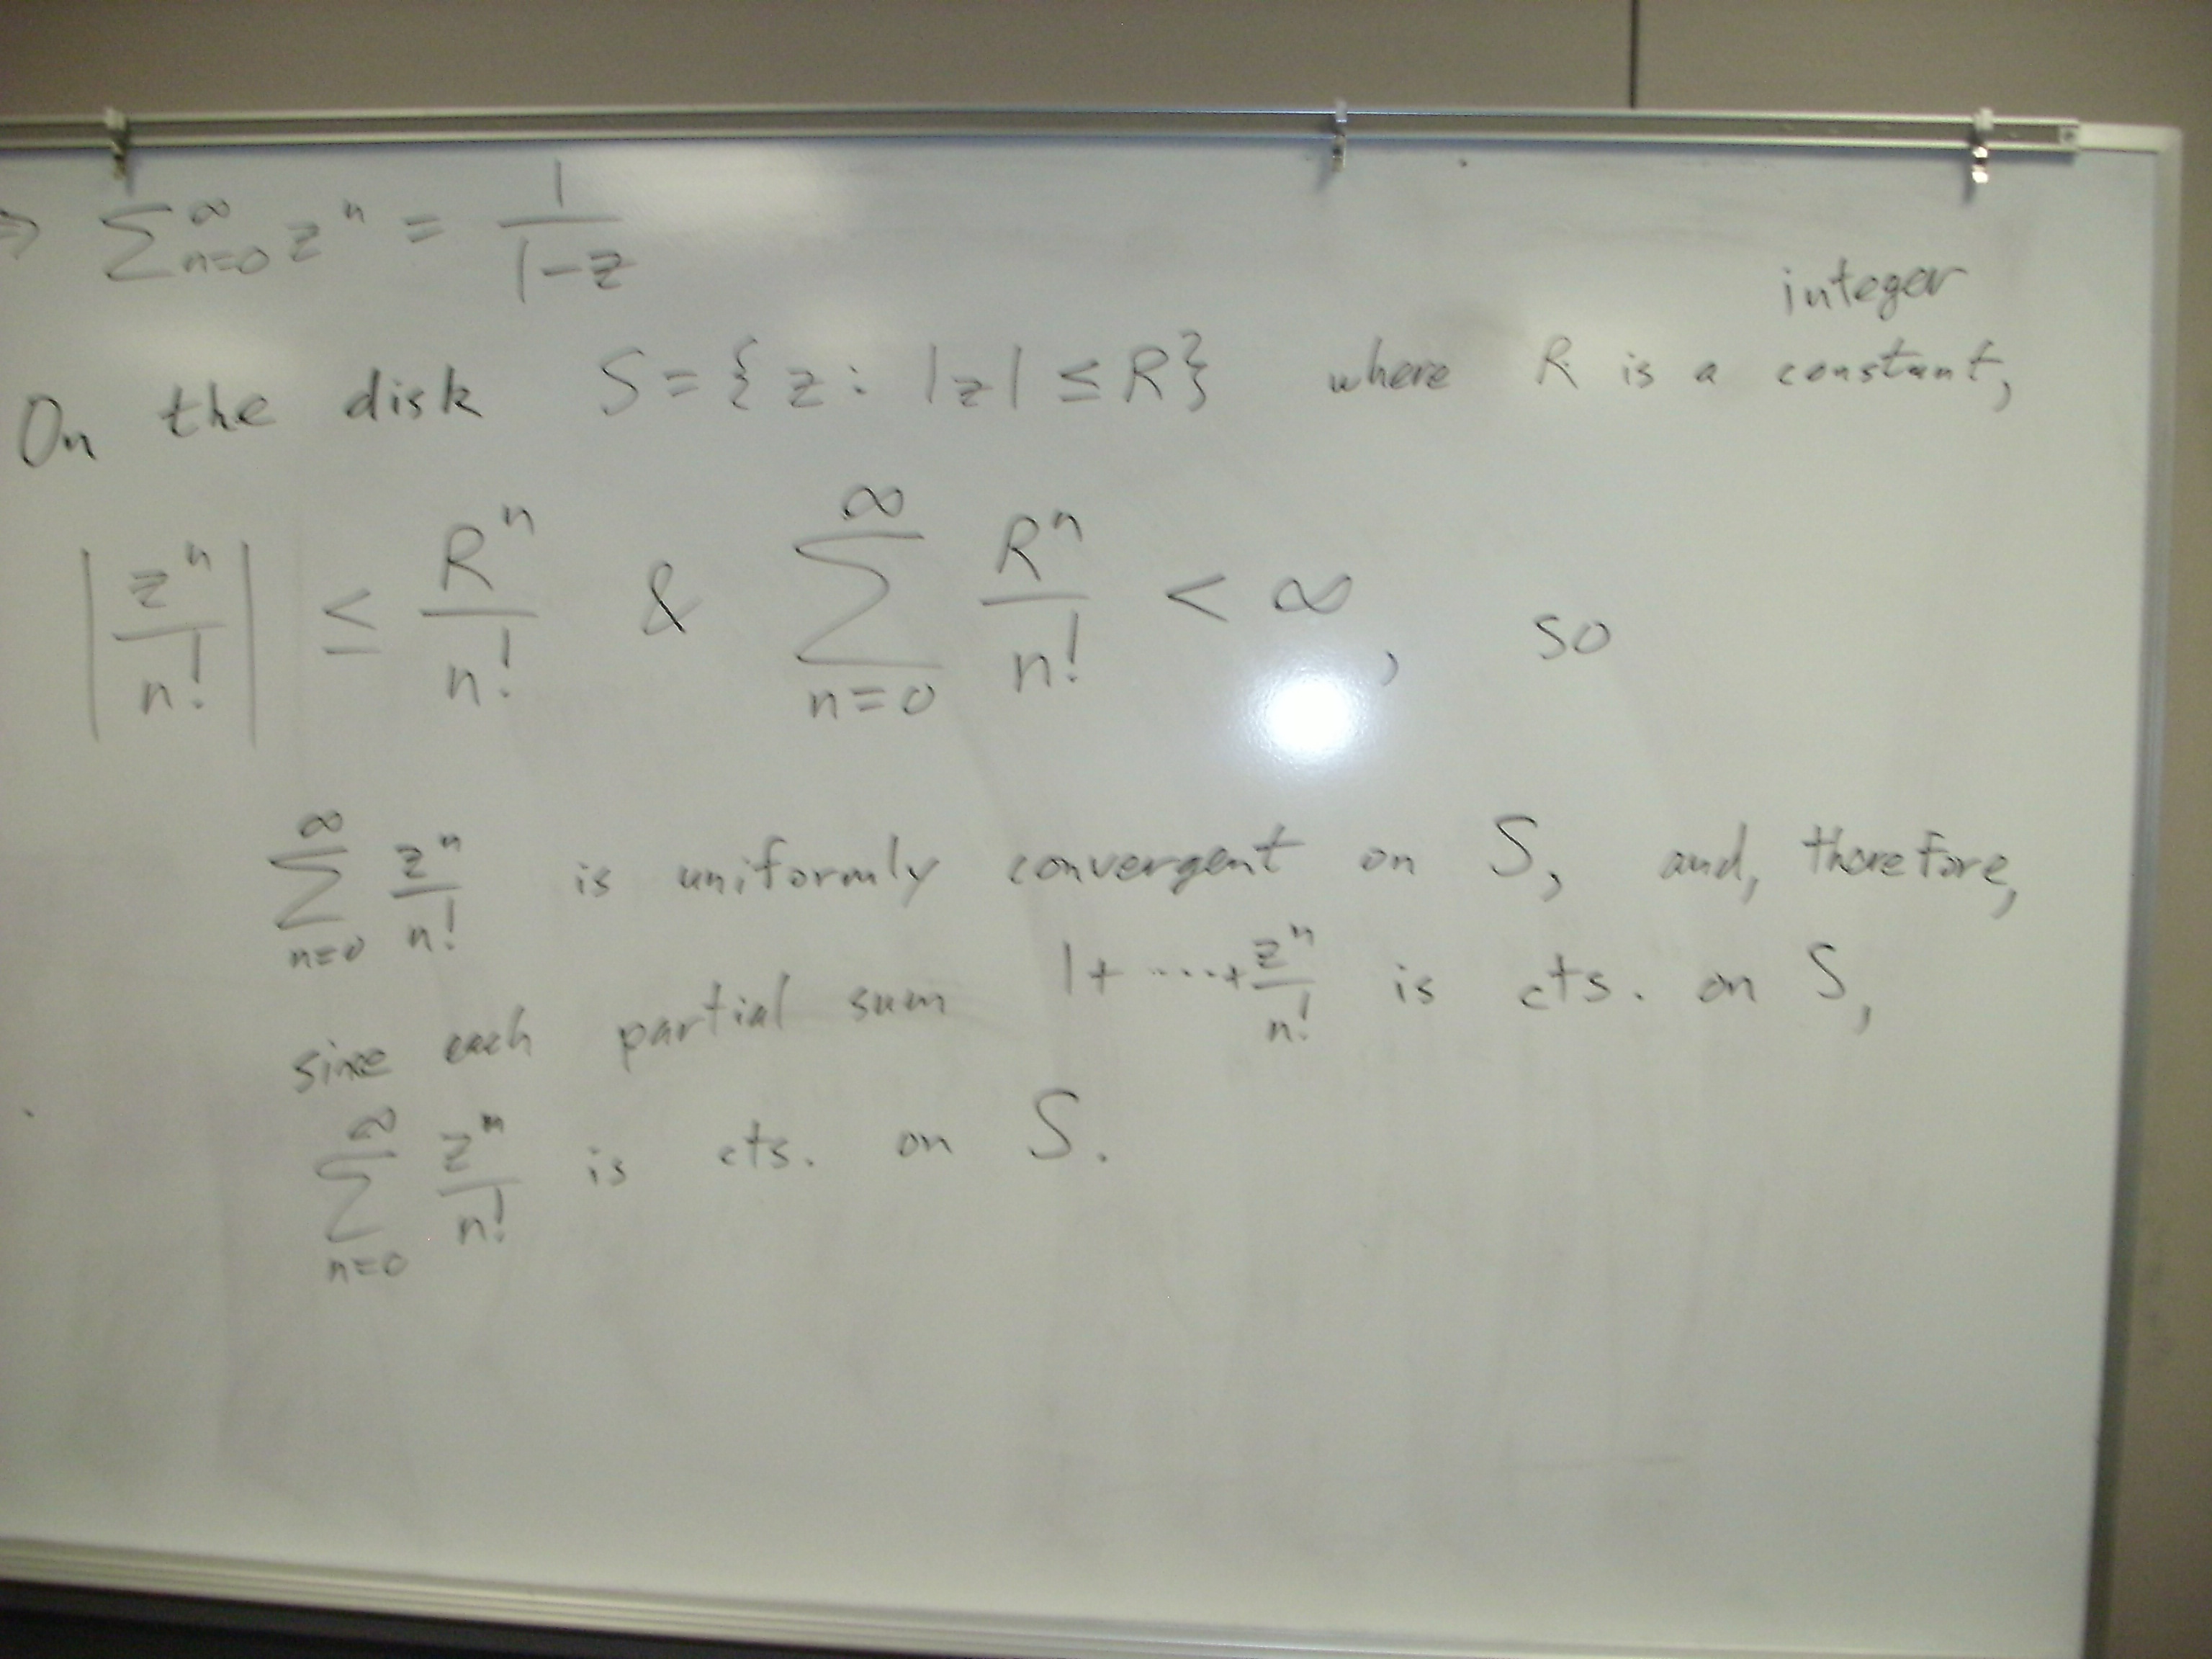 ⇒ ∑_{n=0}^{∞} z^n = 1/(1-z)
integer
On the disk S = {z: |z| ≤ R} where R is a constant,
|z^n/n!| ≤ R^n/n! & ∑_{n=0}^{∞} R^n/n! < ∞, so
∑_{n=0}^{∞} z^n/n! is uniformly convergent on S, and, therefore,
since each partial sum 1+ ····+ z^n/n! is cts. on S,
∑_{n=0}^{∞} z^n/n! is cts. on S.